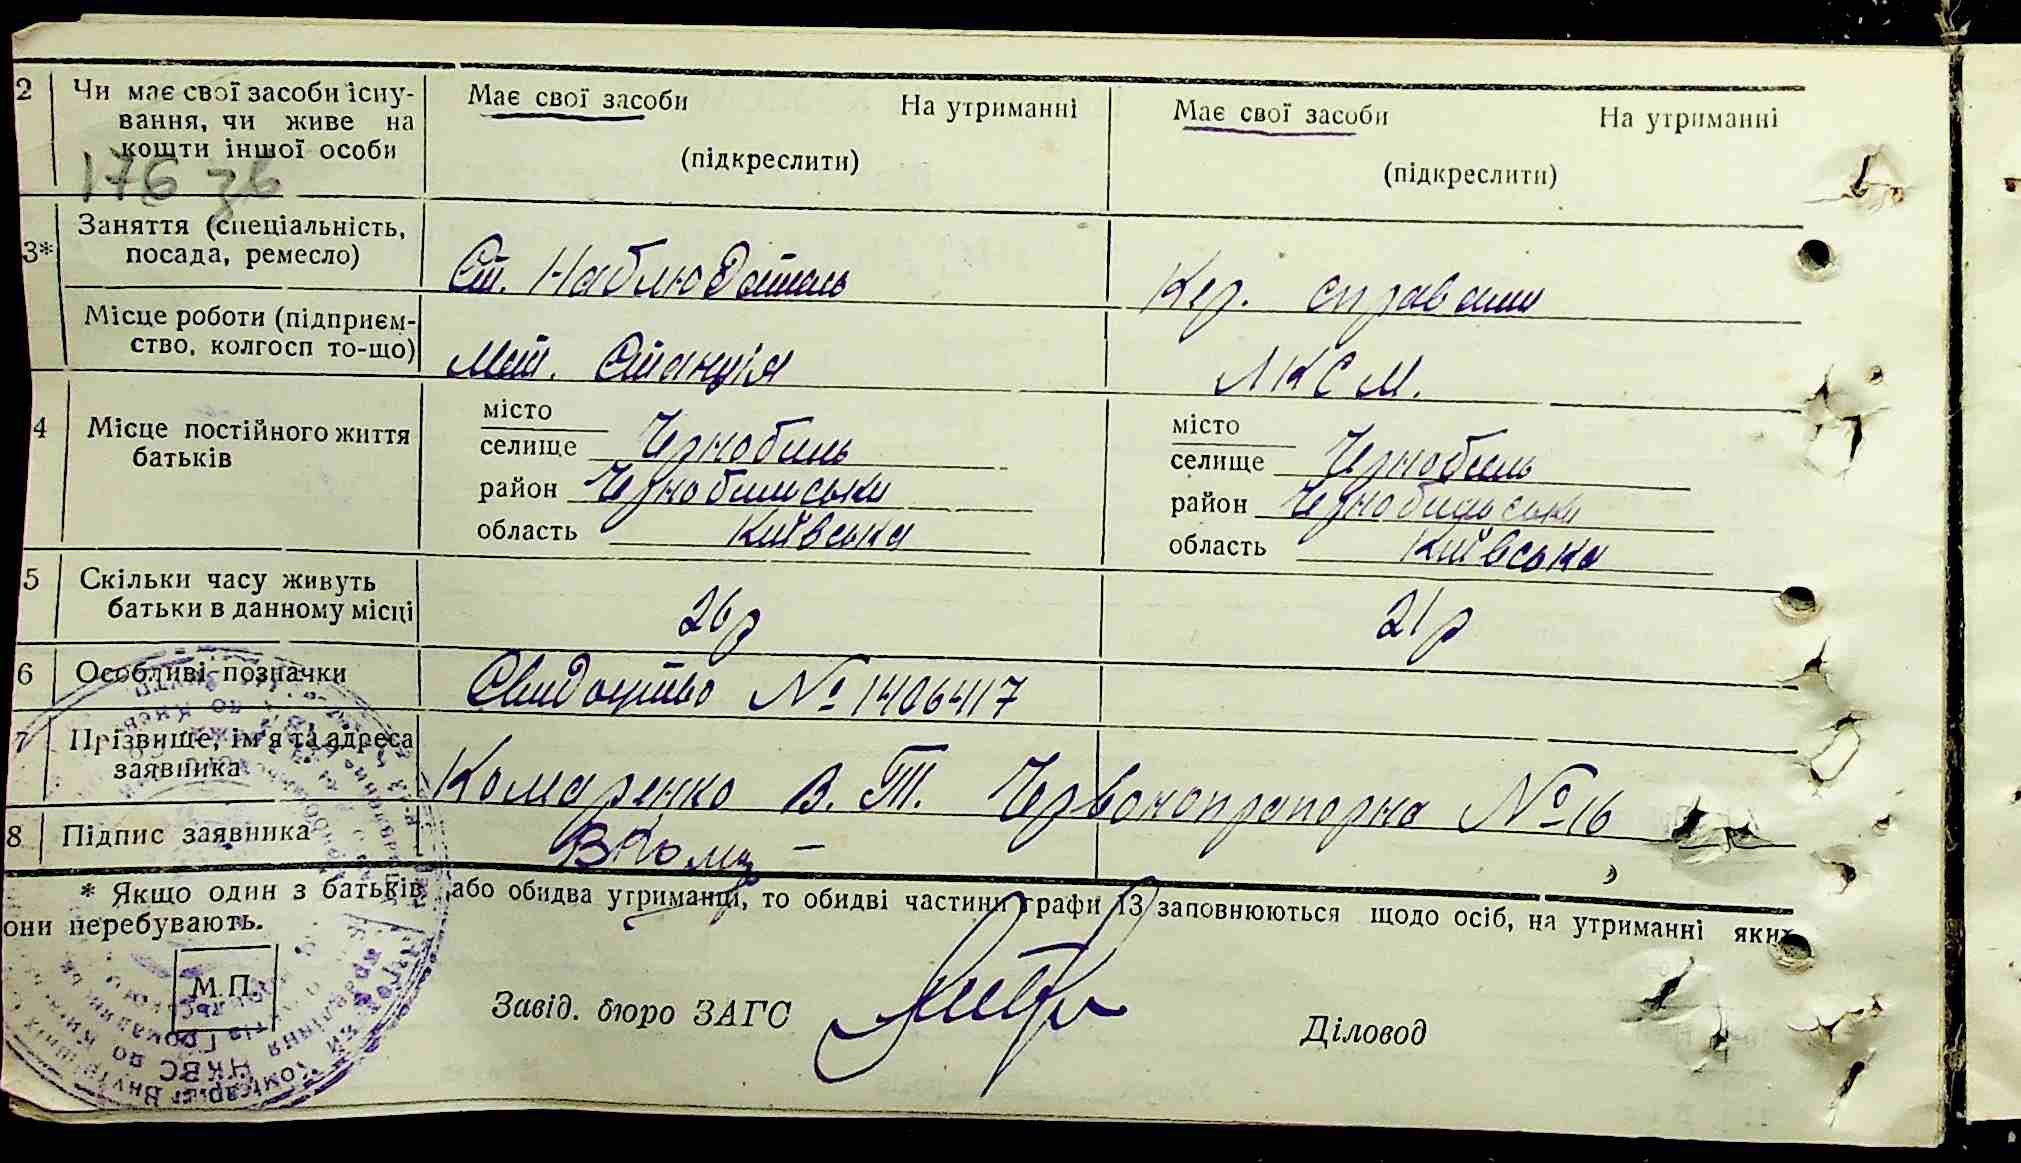 2 Чи має свої засоби існу-
вання, чи живе на
кошти іншої особи
Має свої засоби На утриманні
(підкреслити)
Має свої засоби На утриманні
(підкреслити)
176 зв
3* Заняття (спеціальність,
посада, ремесло)
Ст. Наблюдатель
Кер. справами
Місце роботи (підприєм-
ство, колгосп то-що)
Мет. Станція
ЛКСМ.
4 Місце постійного життя
батьків
місто
селище Чернобиль
район Чернобильськи
область Київська
місто
селище Чернобиль
район Чернобильськи
область Київська
5 Скільки часу живуть
батьки в данному місці
26 р
21 р
6 Особливі позначки
Свидоцтво № 1406417
7 Прізвище, ім'я та адреса
заявника
Комаренко В. Т. Червонопрапорна № 16
8 Підпис заявника
* Якщо один з батьків або обидва утриманці, то обидві частини графи 13 заповнюються щодо осіб, на утриманні яких
они перебувають.
М.П.
Завід. бюро ЗАГС
Діловод